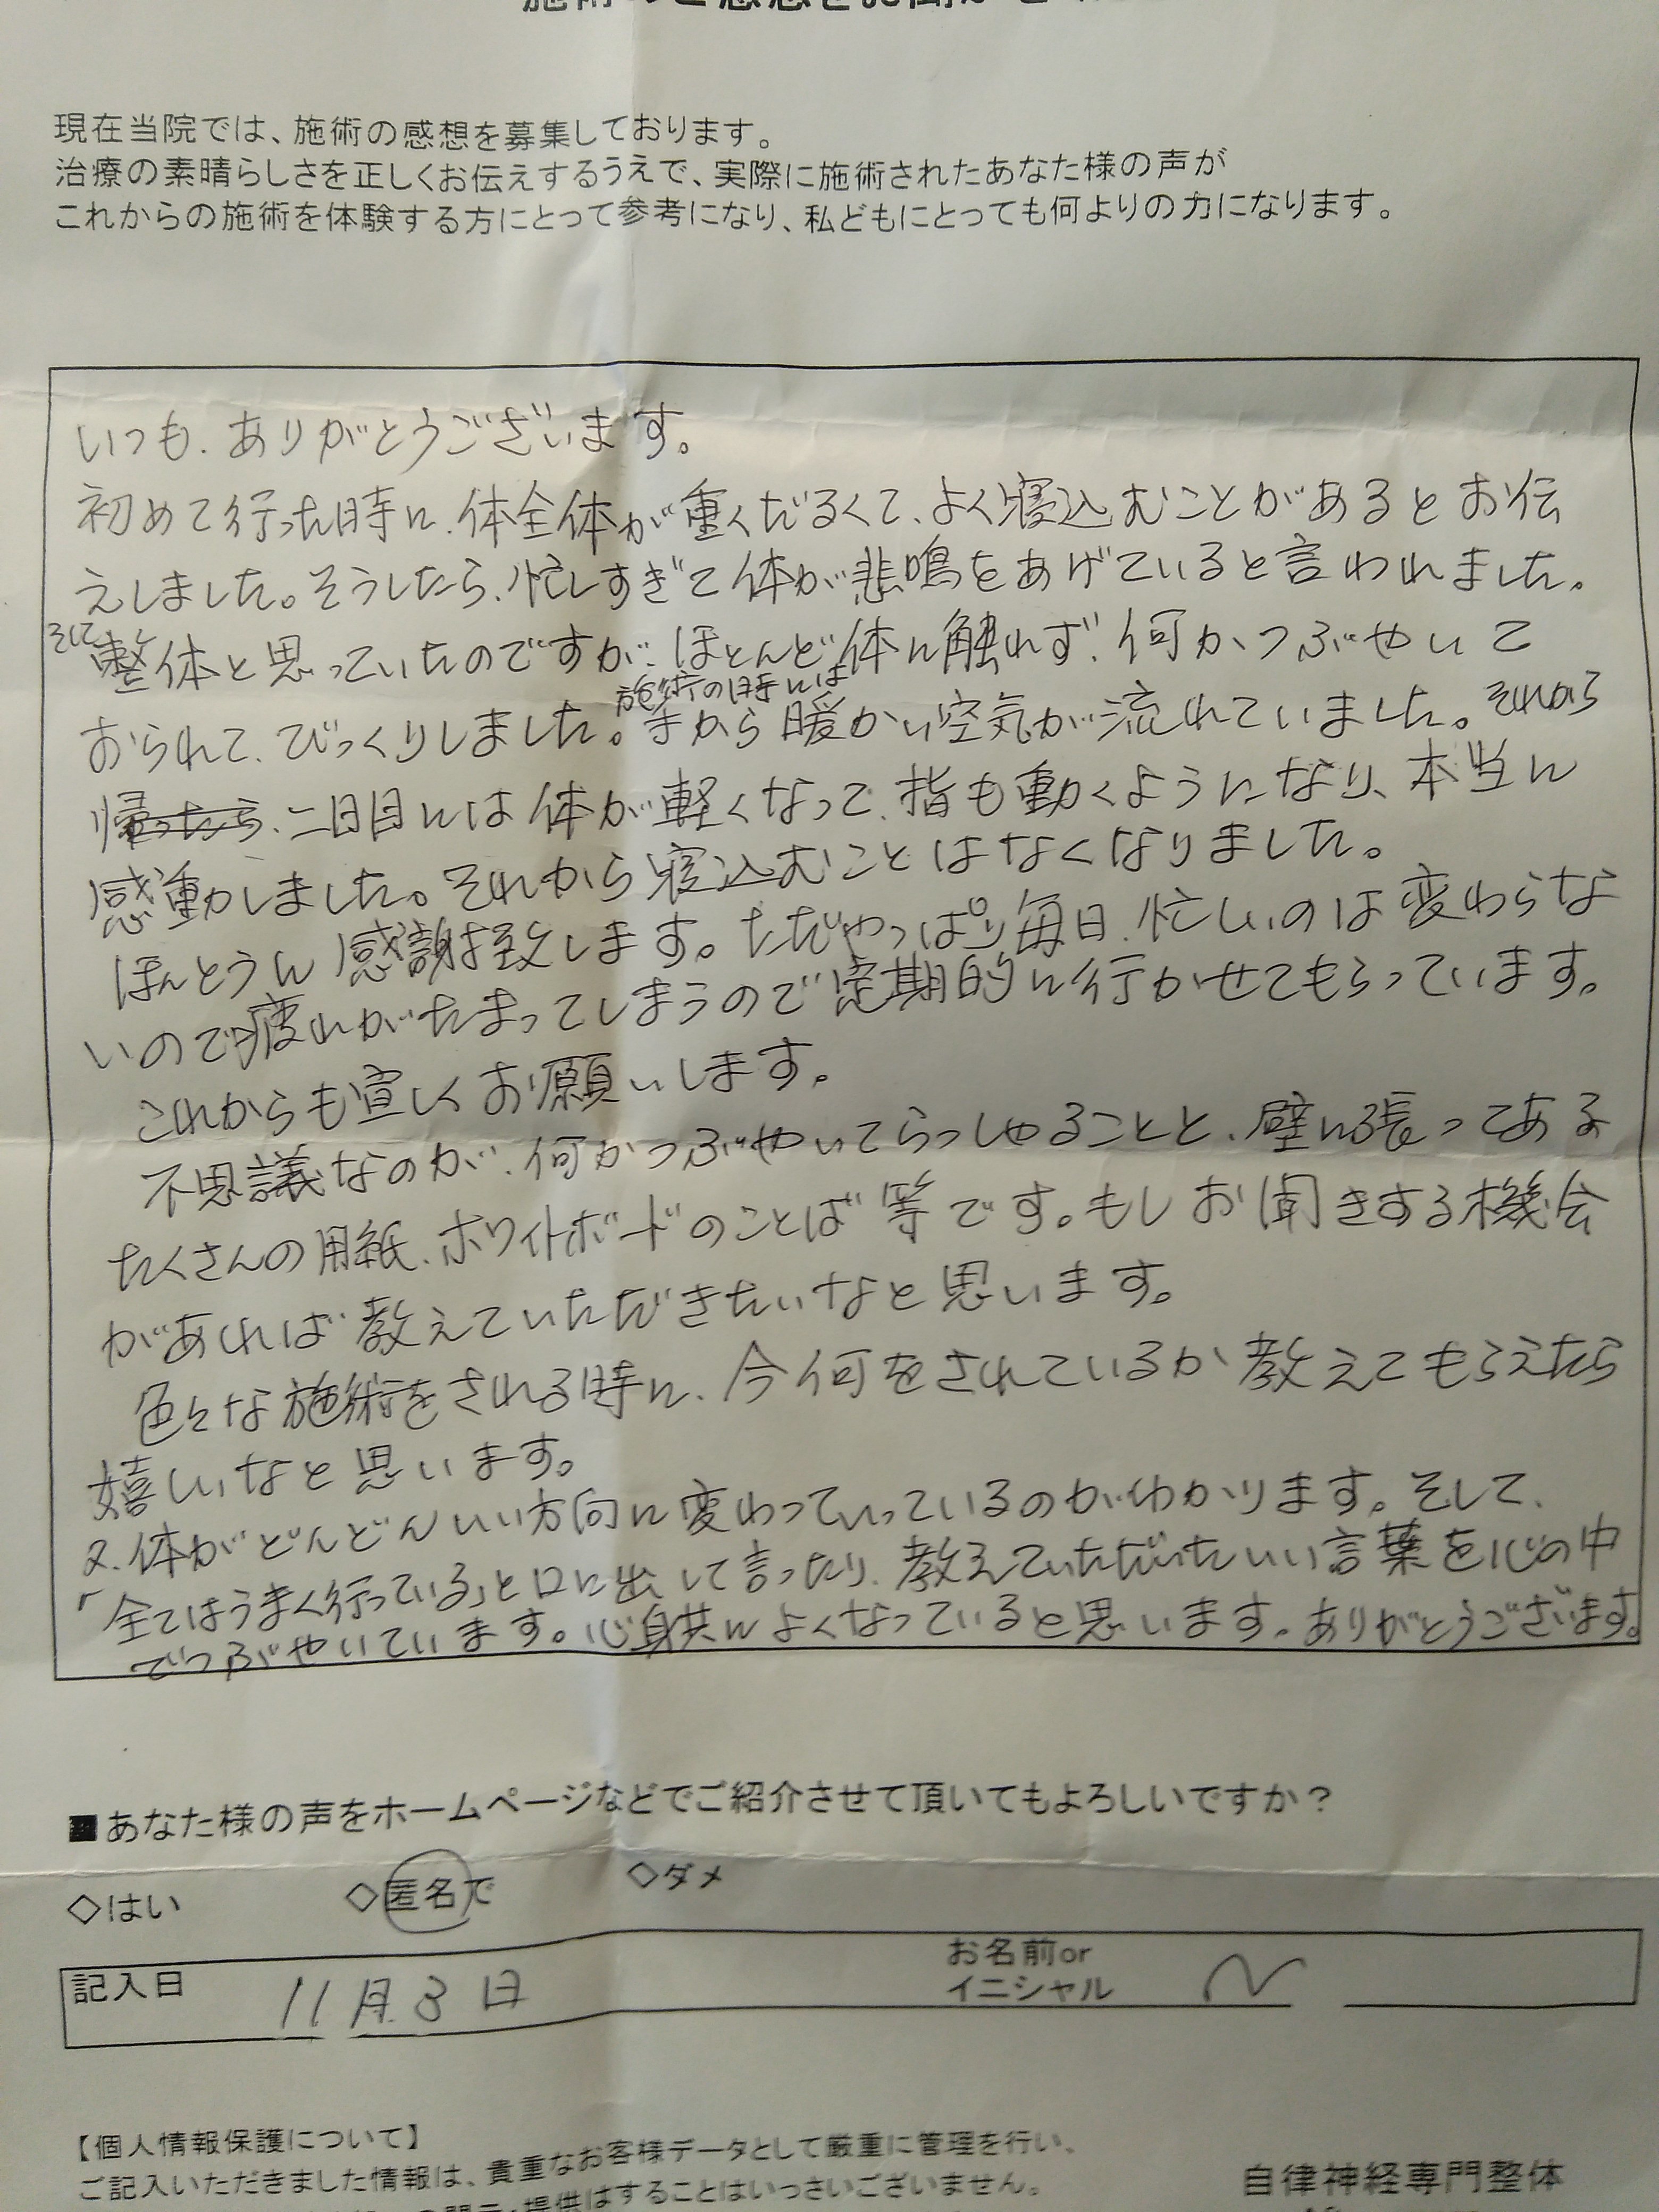 現在当院では、施術の感想を募集しております。
治療の素晴らしさを正しくお伝えするうえで、実際に施術されたあなた様の声が
これからの施術を体験する方にとって参考になり、私どもにとっても何よりの力になります。
いつも、ありがとうございます。
初めて行った時に、体全体が重くだるくて、よく寝込むことがあるとお伝
えしました。そうしたら、忙しすぎて体が悲鳴をあげていると言われました。
そして整体と思っていたのですが、ほとんど体に触れず、何かつぶやいて
おられて、びっくりしました。施術の時には手から暖かい空気が流れていました。それから
帰ったら、二日目には体が軽くなって、指も動くようになり、本当に
感動しました。それから寝込むことはなくなりました。
ほんとうに感謝致します。ただやっぱり毎日、忙しいのは変わらな
いので疲れがたまってしまうので定期的に行かせてもらっています。
これからも宜しくお願いします。
不思議なのが、何かつぶやいてらっしゃることと、壁に張ってある
たくさんの用紙、ホワイトボードのことば等です。もしお聞きする機会
があれば教えていただきたいなと思います。
色々な施術をされる時に、今何をされているか教えてもらえたら
嬉しいなと思います。
又、体がどんどんいい方向に変わっていっているのがわかります。そして、
「全てはうまく行っている」と口に出して言ったり、教えていただいたいい言葉を心の中
でつぶやいています。心身共によくなっていると思います。ありがとうございます。
■あなた様の声をホームページなどでご紹介させて頂いてもよろしいですか？
◇はい ◇匿名で ◇ダメ
記入日 11月3日 お名前or
イニシャル N
【個人情報保護について】
ご記入いただきました情報は、貴重なお客様データとして厳重に管理を行い、
提供はすることはいっさいございません。
自律神経専門整体